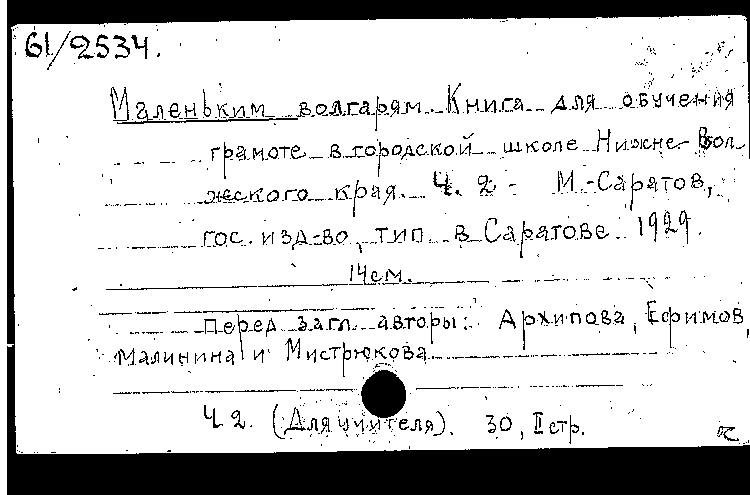 61/2534.
Маленьким волгарям. Книга для обучения
грамоте в городской школе Нижне-Вол
жского края. Ч. 2 - М.-Саратов,
гос. изд-во, тип. в Саратове. 1929.
14см.
Перед загл. авторы: Архипова, Ефимов,
Малинина и Мистрюкова
Ч 2. (Для учителя). 30, II стр.